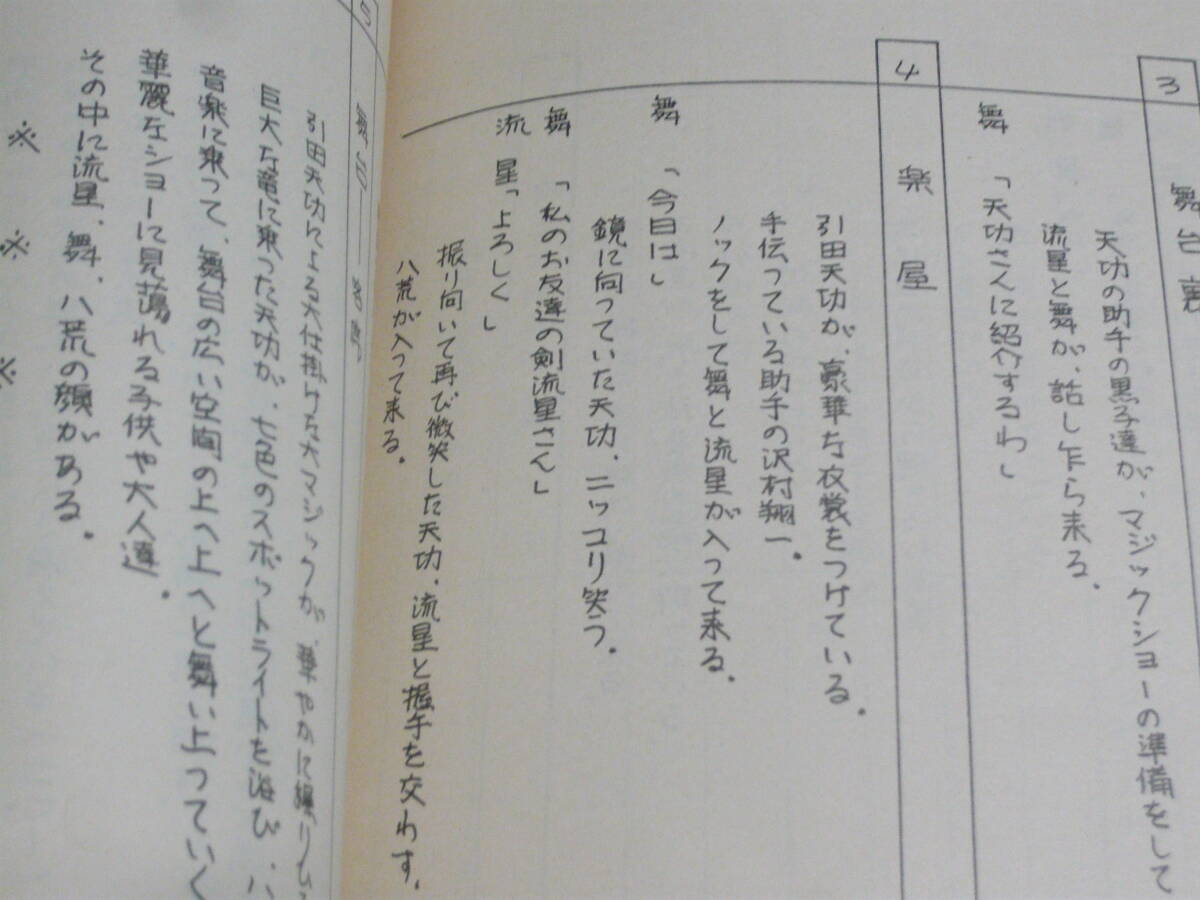 3 舞台裏
天功の助手の黒子達が、マジックショーの準備をして
流星と舞が、話し乍ら来る。
舞 「天功さんに紹介するわ」
4 楽屋
引田天功が、豪華な衣裳をつけている。
手伝っている助手の沢村翔一。
ノックをして舞と流星が入って来る。
舞 「今日は」
鏡に向っていた天功、ニッコリ笑う。
舞 「私のお友達の剣流星さん」
流星「よろしく」
振り向いて再び微笑した天功、流星と握手を交わす。
八荒が入って来る。
5 舞台
引田天功による大仕掛けな大マジックが、華やかに繰り
巨大な竜に乗った天功が、七色のスポットライトを浴び、
音楽に乗って、舞台の広い空間の上へ上へと舞い上っていく
華麗なショーに見蕩れる子供や大人達。
その中に流星、舞、八荒の顔がある。
※ ※ ※